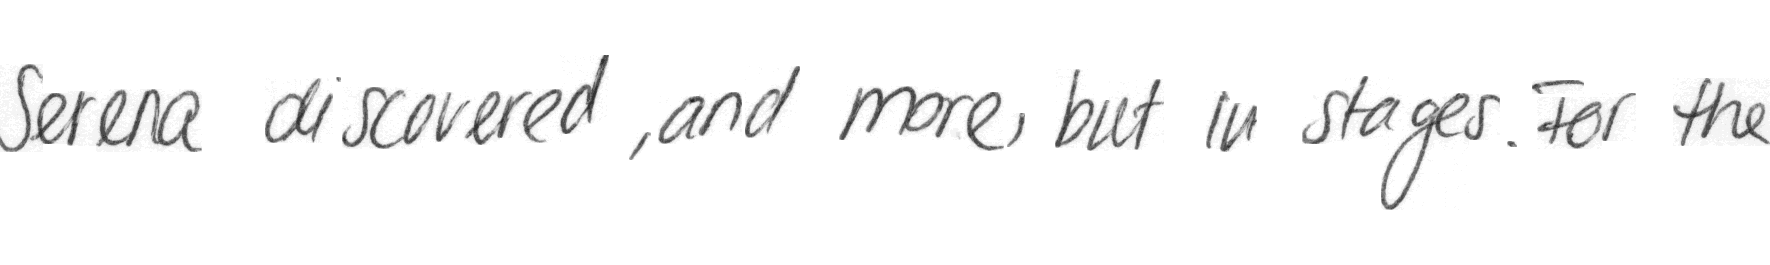 Serena discovered, and more, but in stages. For the